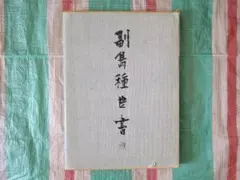 副島種臣書